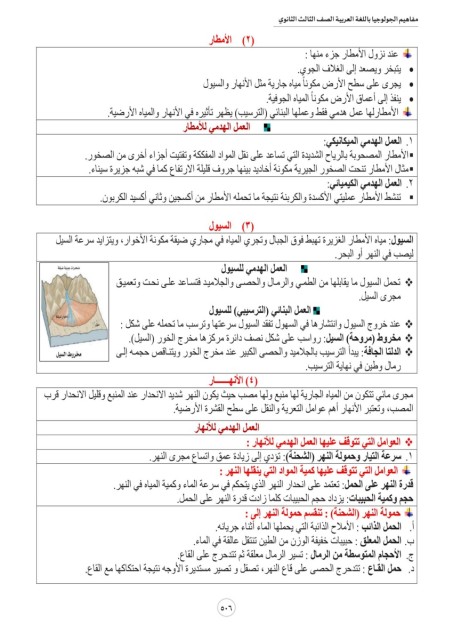 مفاهيم الجولوجيا باللغة العربية الصف الثالث الثانوي
(٢) الأمطار
عند نزول الأمطار جزء منها :
يتبخر ويصعد إلى الغلاف الجوي.
يجرى على سطح الأرض مكوناً مياه جارية مثل الأنهار والسيول
ينفذ إلى أعماق الأرض مكوناً المياه الجوفية.
الأمطارلها عمل هدمي فقط وعملها البنائي (الترسيب) يظهر تأثيره في الأنهار والمياه الأرضية.
العمل الهدمي للأمطار
١. العمل الهدمي الميكانيكي:
الأمطار المصحوبة بالرياح الشديدة التي تساعد على نقل المواد المفككة وتفتيت أجزاء أخرى من الصخور.
مثال الأمطار تنحت الصخور الجيرية مكونة أخاديد بينها جروف قليلة الارتفاع كما في شبه جزيرة سيناء.
٢. العمل الهدمي الكيميائي:
تنشط الأمطار عمليتي الأكسدة والكربنة نتيجة ما تحمله الأمطار من أكسجين وثاني أكسيد الكربون.
(٣) السيول
السيول: مياه الأمطار الغزيرة تهبط فوق الجبال وتجري المياه في مجاري ضيقة مكونة الأخوار، ويتزايد سرعة السيل
ليصب في النهر أو البحر.
العمل الهدمي للسيول
تحمل السيول ما يقابلها من الطمي والرمال والحصى والجلاميد فتساعد على نحت وتعميق
مجرى السيل.
العمل البنائي (الترسيبي) للسيول
عند خروج السيول وانتشارها في السهول تفقد السيول سرعتها وترسب ما تحمله على شكل :
مخروط (مروحة) السيل: رواسب على شكل نصف دائرة مركزها مخرج الخور (السيل).
الدلتا الجافة: يبدأ الترسيب بالجلاميد والحصى الكبير عند مخرج الخور ويتناقص حجمه إلى
رمال وطين في نهاية الترسيب.
مخروط السيل
(٤) الأنهـــــار
مجرى مائي تتكون من المياه الجارية لها منبع ولها مصب حيث يكون النهر شديد الانحدار عند المنبع وقليل الانحدار قرب
المصب، وتعتبر الأنهار أهم عوامل التعرية والنقل على سطح القشرة الأرضية.
العمل الهدمي للأنهار
العوامل التي تتوقف عليها العمل الهدمي للأنهار :
١. سرعة التيار وحمولة النهر (الشحنة): تؤدي إلى زيادة عمق واتساع مجرى النهر.
العوامل التي تتوقف عليها كمية المواد التي ينقلها النهر :
قدرة النهر على الحمل: تعتمد على انحدار النهر الذي يتحكم في سرعة الماء وكمية المياه في النهر.
حجم وكمية الحبيبات: يزداد حجم الحبيبات كلما زادت قدرة النهر على الحمل.
حمولة النهر (الشحنة) : تنقسم حمولة النهر إلى :
أ. الحمل الذائب : الأملاح الذائبة التي يحملها الماء أثناء جريانه.
ب. الحمل المعلق : حبيبات خفيفة الوزن من الطين تنتقل عالقة في الماء.
ج. الأحجام المتوسطة من الرمال : تسير الرمال معلقة ثم تتدحرج على القاع.
د. حمل القاع : تتدحرج الحصى على قاع النهر، تصقل و تصير مستديرة الأوجه نتيجة احتكاكها مع القاع.
٥٠٦